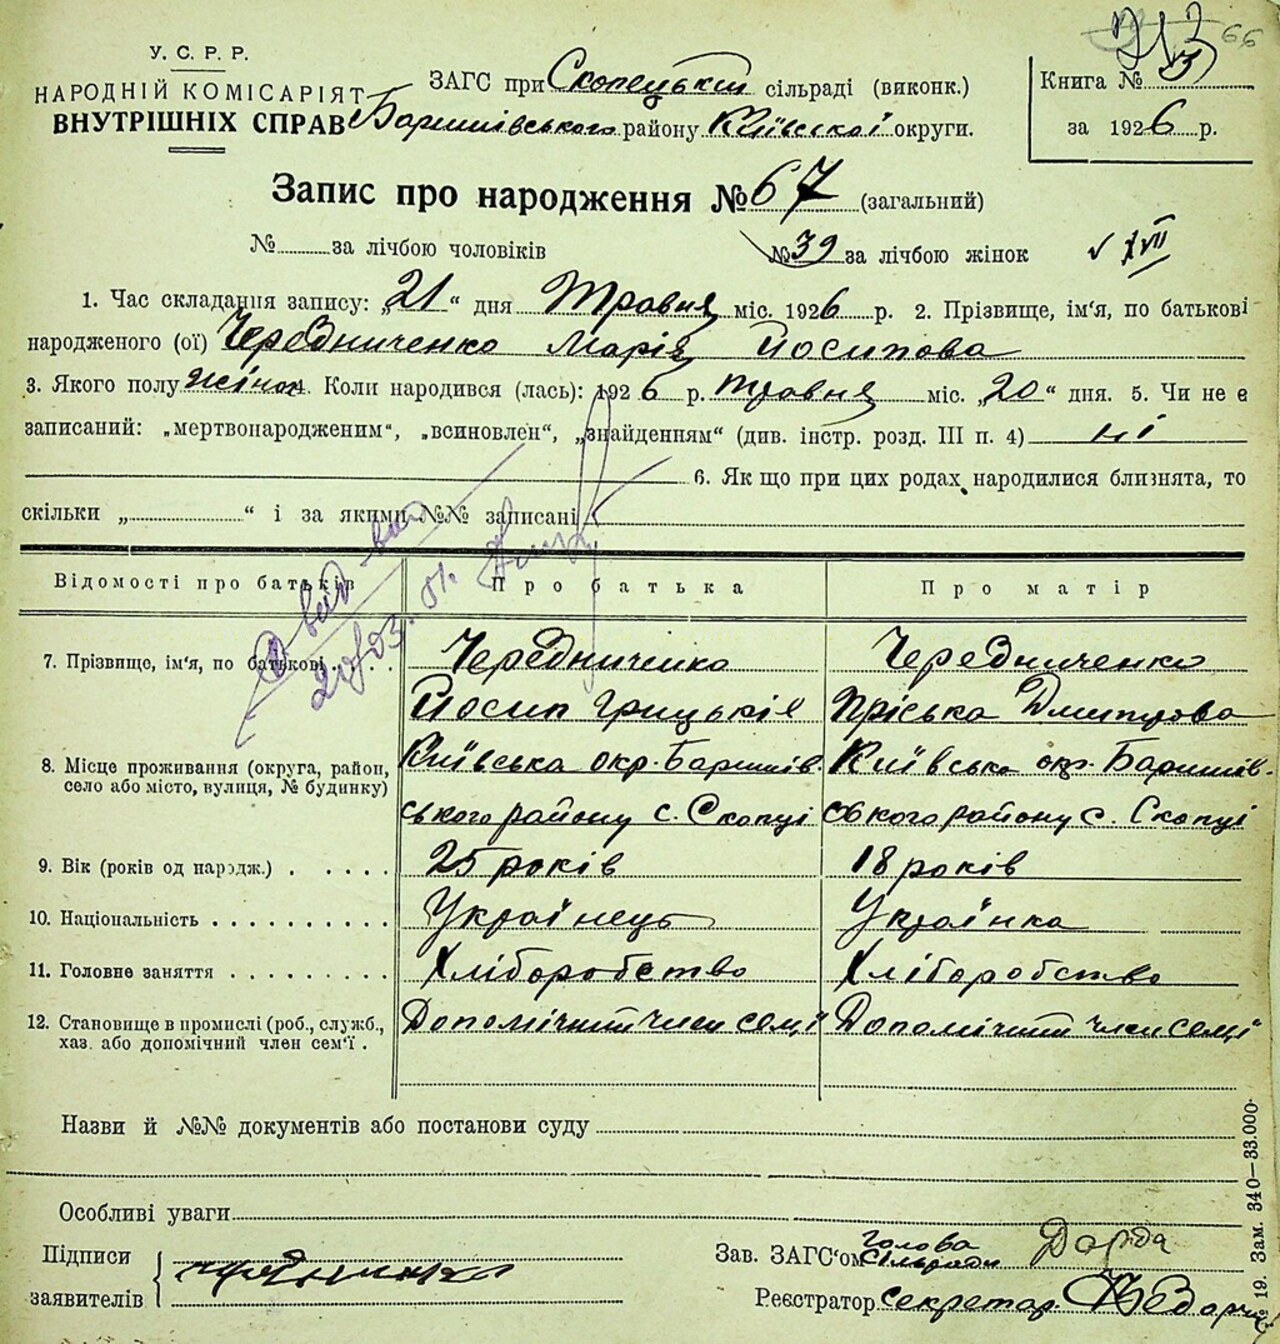 66
У. С. Р. Р.
НАРОДНІЙ КОМІСАРІЯТ
ВНУТРІШНІХ СПРАВ
ЗАГС при Скопецький сільраді (виконк.)
Баришівського району Київської округи.
Книга № 3
за 1926 р.
Запис про народження № 67 (загальний)
№ за лічбою чоловіків
№ 39 за лічбою жінок
1. Час складання запису: „21“ дня Травня міс. 1926 р. 2. Прізвище, ім'я, по батькові
народженого (ої) Чередниченко Марія Йосипова
3. Якого полу жіноч 4. Коли народився (лась): 1926 р. травня міс. „20“ дня. 5. Чи не є
записаний: „мертвонародженим“, „всиновлен“, „знайденням“ (див. інстр. розд. III п. 4) ні
6. Як що при цих родах народилися близнята, то
скільки „ “ і за якими №№ записані
Відомості про батьків Про батька Про матір
7. Прізвище, ім'я, по батькові Чередниченко Чередниченко
Йосип Грицьків Пріська Дмитрова
8. Місце проживання (округа, район, Київська окр. Баришів- Київська окр. Баришів-
село або місто, вулиця, № будинку) ського району с. Скопці ського району с. Скопці
9. Вік (років од народж.) 25 років 18 років
10. Національність Українець Українка
11. Головне заняття Хліборобство Хліборобство
12. Становище в промислі (роб., служб., Допомічний член семї Допомічний член семї
хаз. або допомічний член сем'ї .
Назви й №№ документів або постанови суду
Особливі уваги
Підписи
заявителів
Зав. ЗАГС'ом Голова
Сільради
Реєстратор секретар
№ 19. Зам. 340—33.000.